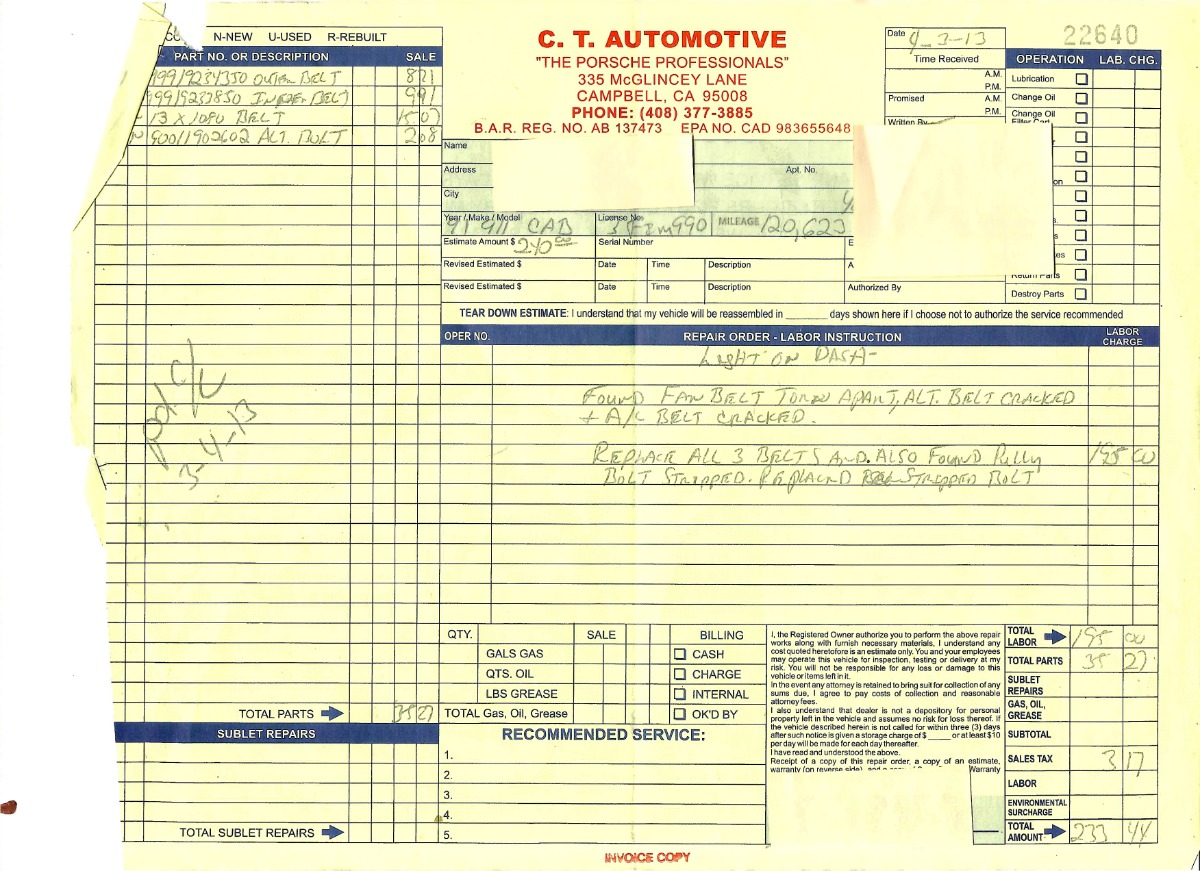 N-NEW U-USED R-REBUILT
PART NO. OR DESCRIPTION SALE
99919234350 OUTER BELT 8 21
99919233850 INNER BELT 9 91
13 X 1080 BELT 15 07
N 90011902602 ALT. BOLT 2 08
pd. c/c
3-4-13
TOTAL PARTS 35 27
SUBLET REPAIRS
TOTAL SUBLET REPAIRS
C. T. AUTOMOTIVE
"THE PORSCHE PROFESSIONALS"
335 McGLINCEY LANE
CAMPBELL, CA 95008
PHONE: (408) 377-3885
B.A.R. REG. NO. AB 137473 EPA NO. CAD 983655648
Date 4-3-13
22640
Time Received
A.M.
P.M.
Promised A.M.
P.M.
Written By
OPERATION LAB. CHG.
Lubrication
Change Oil
Change Oil
Return Parts
Destroy Parts
Name
Address Apt. No.
City
Year / Make / Model 91 911 CAB License No. MILEAGE 120,623
Estimate Amount $ 240 00 Serial Number
Revised Estimated $ Date Time Description
Revised Estimated $ Date Time Description Authorized By
TEAR DOWN ESTIMATE: I understand that my vehicle will be reassembled in ________ days shown here if I choose not to authorize the service recommended
OPER NO. REPAIR ORDER - LABOR INSTRUCTION LABOR CHARGE
LIGHT ON DASH-
FOUND FAN BELT TORN APART, ALT. BELT CRACKED
+ A/C BELT CRACKED.
REPLACE ALL 3 BELTS AND. ALSO FOUND PULLY 195 00
BOLT STRIPPED. REPLACED STRIPPED BOLT
QTY. SALE BILLING
GALS GAS CASH
QTS. OIL CHARGE
LBS GREASE INTERNAL
TOTAL Gas, Oil, Grease OK'D BY
RECOMMENDED SERVICE:
1.
2.
3.
4.
5.
I, the Registered Owner authorize you to perform the above repair
works along with furnish necessary materials, I understand any
cost quoted heretofore is an estimate only. You and your employees
may operate this vehicle for inspection, testing or delivery at my
risk. You will not be responsible for any loss or damage to this
vehicle or items left in it.
In the event any attorney is retained to bring suit for collection of any
sums due, I agree to pay costs of collection and reasonable
attorney fees.
I also understand that dealer is not a depository for personal
property left in the vehicle and assumes no risk for loss thereof. If
the vehicle described herein is not called for within three (3) days
after such notice is given a storage charge of $ _____ or at least $10
per day will be made for each day thereafter.
I have read and understood the above.
Receipt of a copy of this repair order, a copy of an estimate,
warranty (on reverse side), Warranty
TOTAL LABOR 195 00
TOTAL PARTS 35 27
SUBLET REPAIRS
GAS, OIL, GREASE
SUBTOTAL
SALES TAX 3 17
LABOR
ENVIRONMENTAL SURCHARGE
TOTAL AMOUNT 233 44
INVOICE COPY